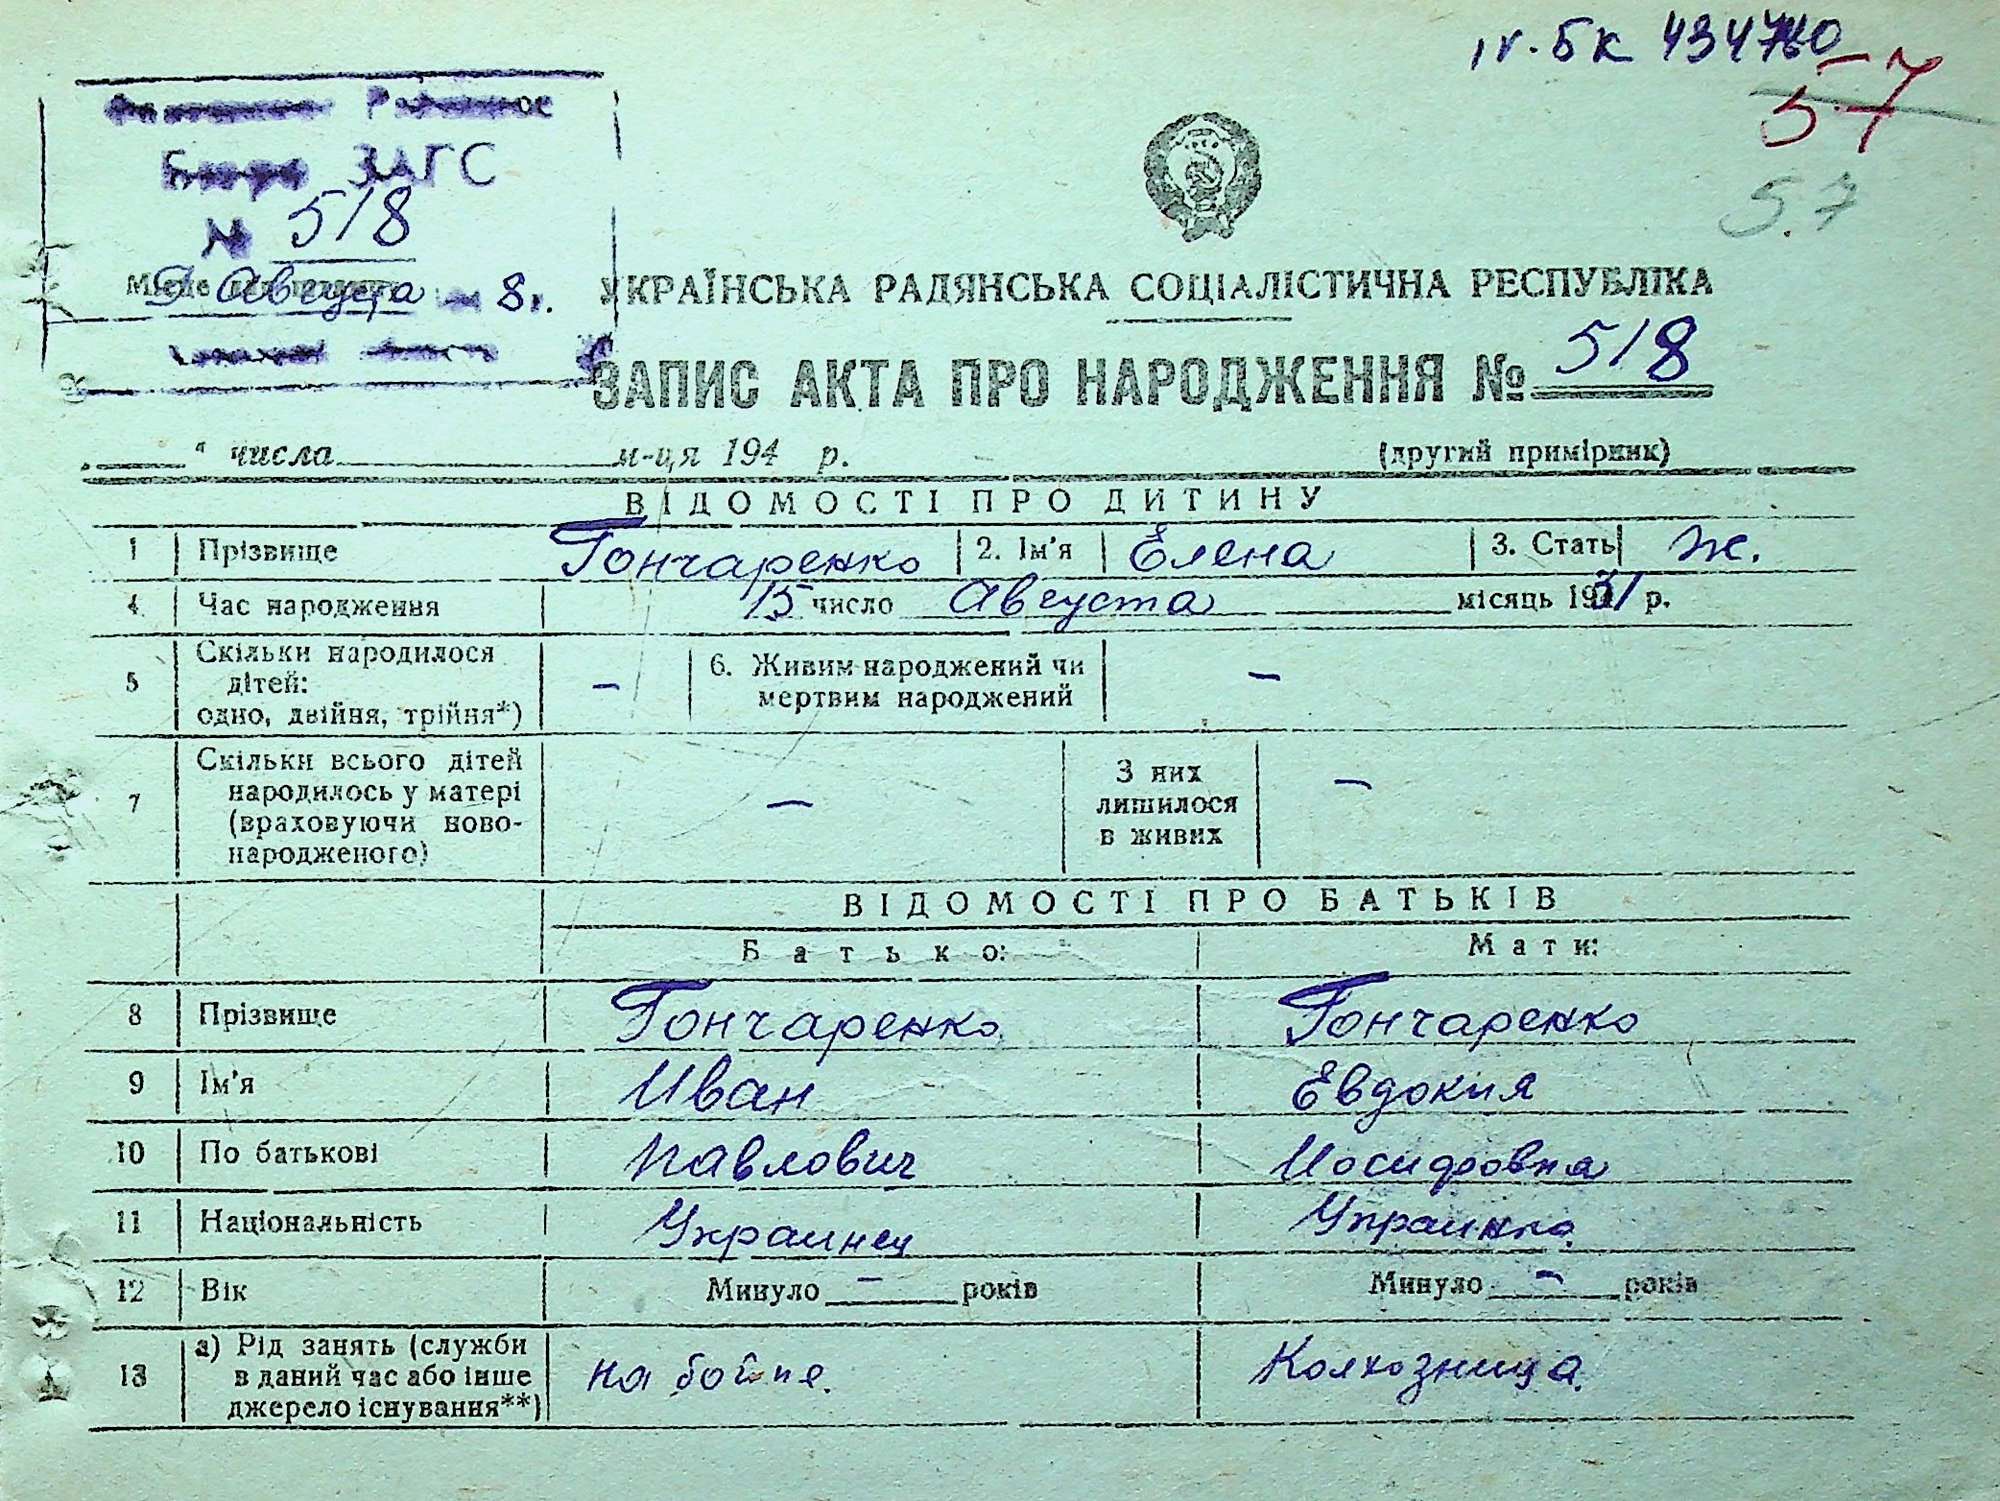 ІV-БК
57
5.7
ЗАГС
№ 518
Місце
5 Августа 8г.
УКРАЇНСЬКА РАДЯНСЬКА СОЦІАЛІСТИЧНА РЕСПУБЛІКА
ЗАПИС АКТА ПРО НАРОДЖЕННЯ № 518
„ “ числа м-ця 194 р. (другий примірник)
ВІДОМОСТІ ПРО ДИТИНУ
1 Прізвище Гончаренко 2. Ім'я Елена 3. Стать ж.
4 Час народження 15 число Августа місяць 1931 р.
5 Скільки народилося
дітей:
одно, двійня, трійня*) –
6. Живим народжений чи
мертвим народжений –
7 Скільки всього дітей
народилось у матері
(враховуючи ново-
народженого) –
З них
лишилося
в живих –
ВІДОМОСТІ ПРО БАТЬКІВ
Батько: Мати:
8 Прізвище Гончаренко Гончаренко
9 Ім'я Иван Евдокия
10 По батькові Павлович Иосифовна
11 Національність Украинец Украинка.
12 Вік Минуло – років Минуло – років
13 а) Рід занять (служби
в даний час або інше
джерело існування**)
на войне. Колхозница.